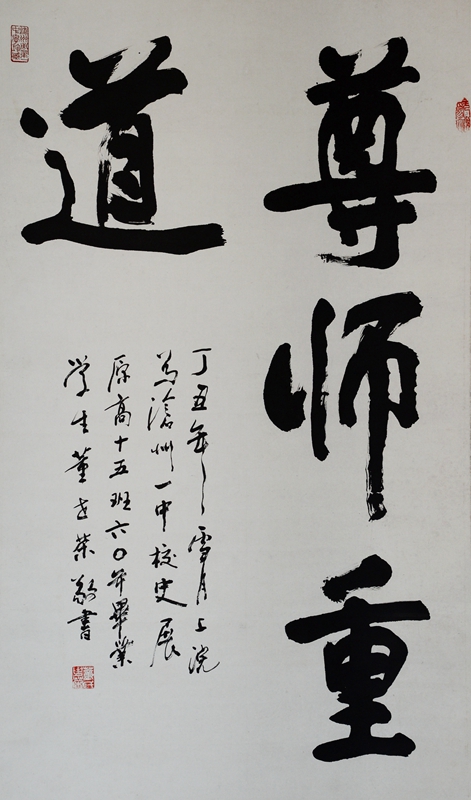 尊师重
道
丁丑年雪月上浣
为滄州一中校史展
原高十五班六〇年畢業
学生董世荣敬書